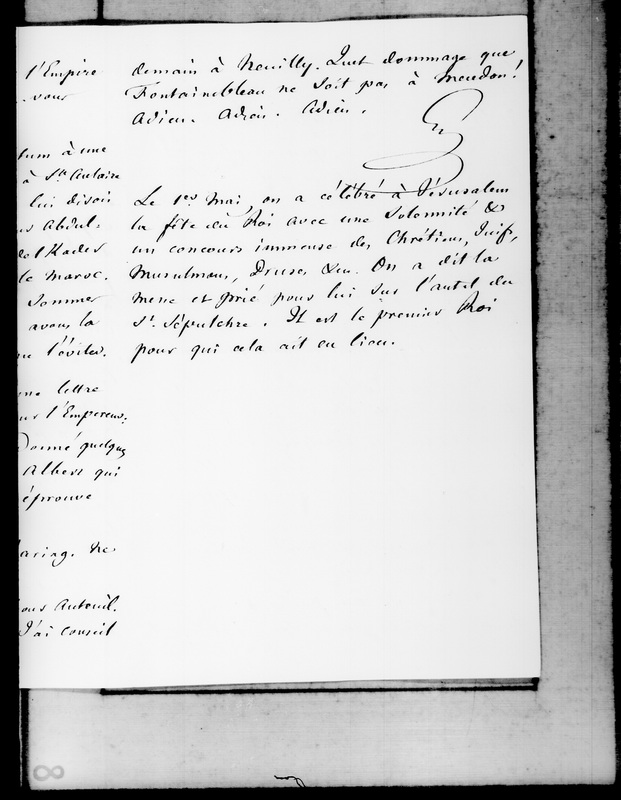 l'Empire
vous
tum à une
à Ste Aulaire
lui disois
us Abdul-
del Kader
le Maroc.
Sommer
avons la
l'éviter.
une lettre
l'Empereur.
Donné quelques
Albert qui
éprouve
&c
Auteuil.
J'ai conseil
demain à Neuilly. Quel dommage que
Fontainebleau ne soit pas à Meudon!
Adieu. Adieu. Adieu.
Le 1er Mai, on a célébré à Jérusalem
la fête du Roi avec une solemnité &
un concours immense des Chrétiens, Juifs,
Musulmans, Druses &c. On a dit la
messe et prié pour lui sur l'autel du
St Sépulchre. Il est le premier Roi
pour qui cela ait eu lieu.